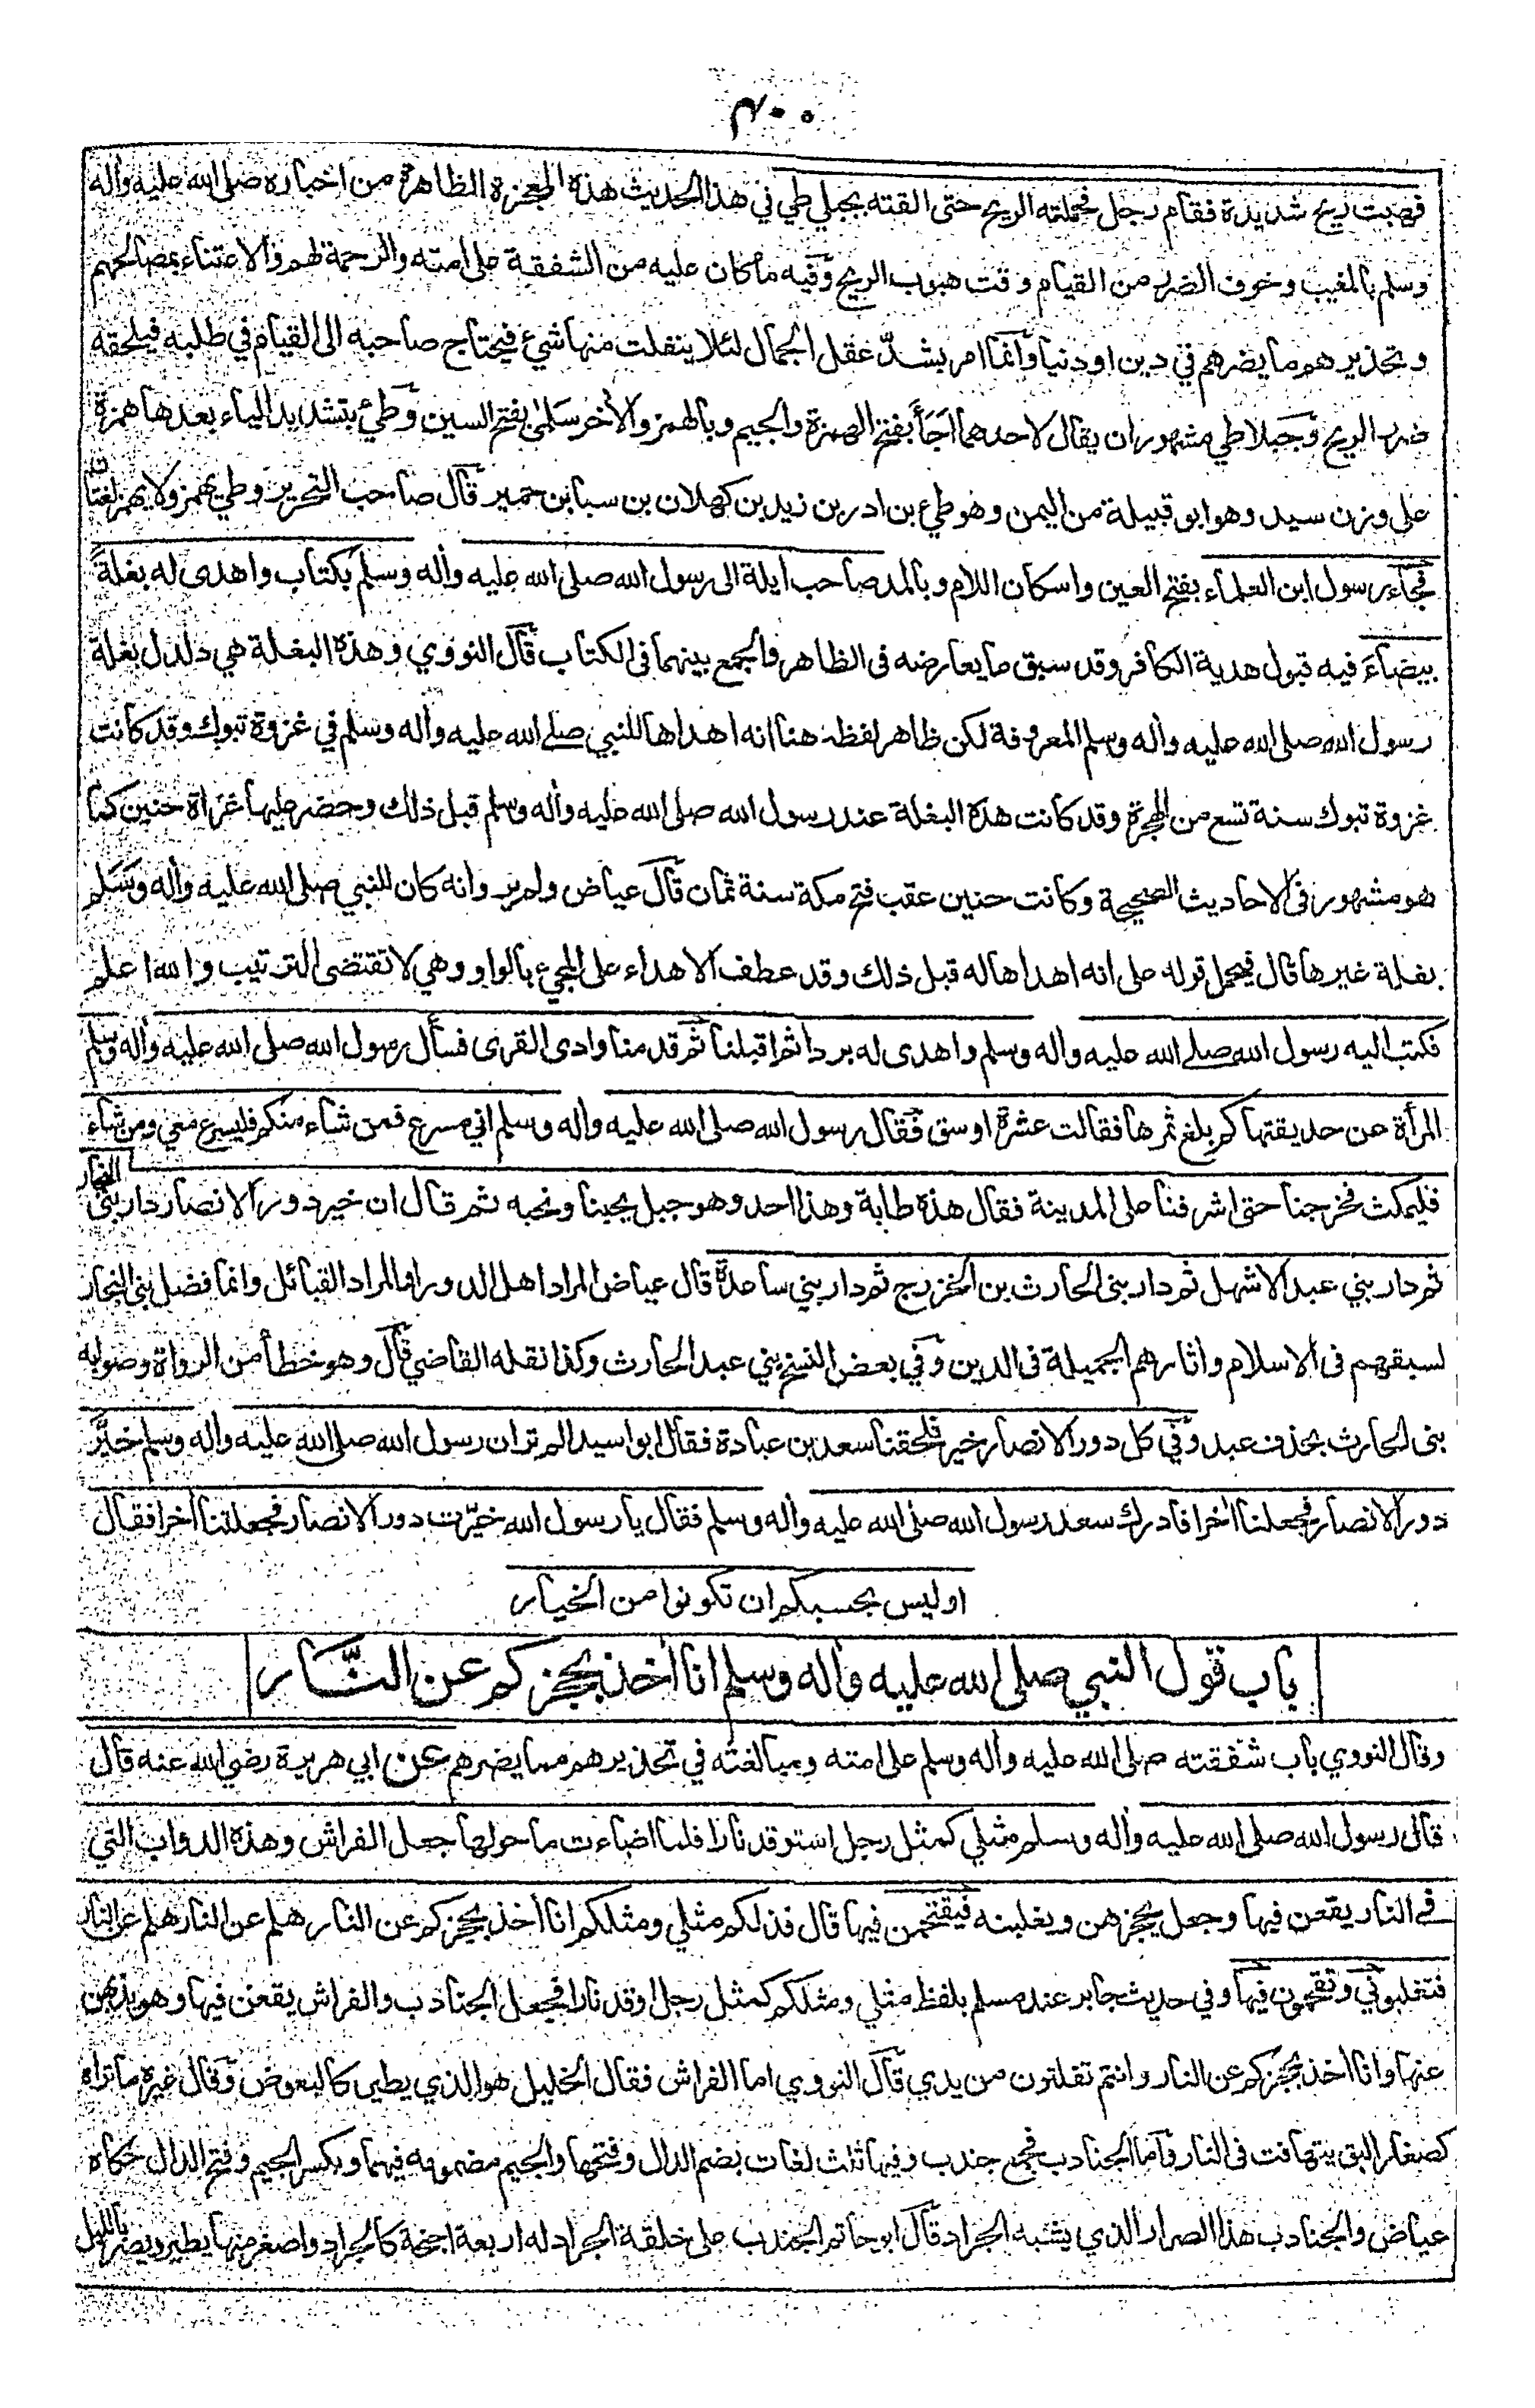 ٤٠٠
فهبت ريح شديدة فقام رجل فحملته الريح حتى القته بجبلي طي في هذا الحديث هذه المعجزة الظاهرة من اخباره صلى الله عليه وأله
وسلم بالمغيب وخوف الضرر من القيام وقت هبوب الريح وفيه ما كان عليه من الشفقة على امته والرحمة لهم والاعتناء بمصالحهم
وتحذيرهم ما يضرهم في دين او دنيا وانما امر بشدّ عقل الجمال لئلا ينفلت منها شيء فيحتاج صاحبه الى القيام في طلبه فيلحقه
ضرب الريح وجبلا طي مشهوران يقال لاحدهما اَجَأَ بفتح الهمزة والجيم وبالهمز والأخر سَلمى بفتح السين وطيء بتشديد الياء بعدها همزة
على وزن سيد وهو ابو قبيلة من اليمن وهو طيء بن ادر بن زيد بن كهلان بن سبا بن حمير قال صاحب التحرير وطي يهمز ولا يهمز لغتان
فجاء رسول ابن العلماء بفتح العين واسكان اللام وبالمد صاحب ايلة الى رسول الله صلى الله عليه وأله وسلم بكتاب واهدى له بغلةً
بيضاءَ فيه قبول هدية الكافر وقد سبق ما يعارضه فى الظاهر والجمع بينهما فى الكتاب قال النووي وهذه البغلة هي دلدل بغلة
رسول الله صلى الله عليه وأله وسلم المعروفة لكن ظاهر لفظه هنا انه اهداها للنبي صلے الله عليه وأله وسلم في غزوة تبوك وقد كانت
غزوة تبوك سنة تسع من الهجرة وقد كانت هذه البغلة عند رسول الله صلى الله عليه وأله وسلم قبل ذلك وحضر عليها غزاة حنين كما
هو مشهور فى الاحاديث الصحيحة وكانت حنين عقب فتح مكة سنة ثمان قال عياض ولم يرد انه كان للنبي صلى الله عليه وأله وسَلم
بغلة غيرها قال فيحمل قوله على انه اهداها له قبل ذلك وقد عطف الاهداء على المجيء بالواو وهي لا تقتضى الترتيب والله اعلم
فكتب اليه رسول الله صلے الله عليه واله وسلم واهدى له بردا ثم اقبلنا ثم قدمنا وادى القرى فسأل رسول الله صلى الله عليه وأله وسلم
المرأة عن حديقتها كم بلغ ثمرها فقالت عشرة اوسق فقال رسول الله صلى الله عليه وأله وسلم اني مسرع فمن شاء منكم فليسرع معي ومن شاء
فليمكث فخرجنا حتى اشرفنا على المدينة فقال هذه طابة وهذا احد وهو جبل يحبنا ونحبه ثم قال ان خير دور الانصار دار بنى النجار
ثم دار بني عبد الاشهل ثم دار بنى الحارث بن الخزرج ثم دار بني ساعدة قال عياض المراد اهل الدور اما المراد القبائل وانما فضل بنى النجار
لسبقهم فى الاسلام واثارهم الجميلة فى الدين وفي بعض النسخ بني عبد الحارث وكذا نقله القاضي قال وهو خطأ من الرواة وصوابه
بنى الحارث بحذف عبد وفي كل دور الانصار خير فلحقنا سعد بن عبادة فقال ابو اسيد الم تر ان رسول الله صلى الله عليه وأله وسلم خيَّر
دور الانصار فجعلنا أخرا فادرك سعد رسول الله صلى الله عليه وأله وسلم فقال يا رسول الله خيّرت دور الانصار فجعلتنا أخرا فقال
اوليس بحسبكم ان تكونوا من الخيار
باب قول النبي صلى الله عليه وأله وسلم انا أخذ بحجزكم عن النَّار
وقال النووي باب شفقته صلى الله عليه وأله وسلم على امته ومبالغته في تحذيرهم مما يضرهم عن ابي هريرة رضي الله عنه قال
قال رسول الله صلى الله عليه وأله وسلم مثلي كمثل رجل استوقد نارا فلما اضاءت ما حولها جعل الفراش وهذه الدواب التي
فے النار يقعن فيها وجعل يحجزهن ويغلبنه فيقتحمن فيها قال فذلكم مثلي ومثلكم انا أخذ بحجزكم عن النار هلم عن النار هلم عن النار
فتغلبوني وتقحمون فيها وفي حديث جابر عند مسلم بلفظ مثلي ومثلكم كمثل رجل اوقد نارا فجعل الجنادب والفراش يقعن فيها وهو يذبهن
عنها وانا أخذ بحجزكم عن النار وانتم تفلتون من يدي قال النووي اما الفراش فقال الخليل هو الذي يطير كالبعوض وقال غيره ما تراه
كصغار البق يتهافت فى النار واما الجنادب فجمع جندب وفيها ثلث لغات بضم الدال وفتحها والجيم مضمومة فيهما وبكسر الجيم وفتح الدال حكاه
عياض والجنادب هذا الصرار الذي يشبه الجراد قال ابو حاتم الجندب على خلقة الجراد له اربعة اجنحة كالجراد واصغر منها يطير ويصر بالليل